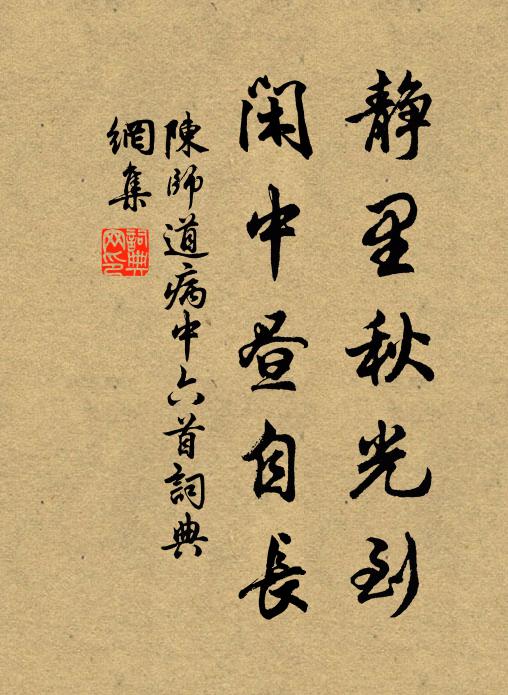 静里秋光到
闲中昼自長
陳師道病中六首詞典
網集
詞典
网印